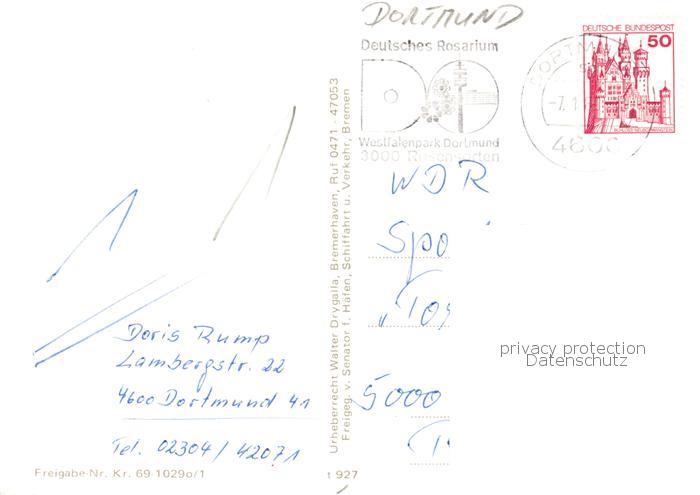 DORTMUND
Deutsches Rosarium
Westfalenpark Dortmund
3000 Rosensorten
DORTM
4600
DEUTSCHE BUNDESPOST
50
SCHLOSS NEUSCHWANSTEIN
WDR
Spo
"To
5000
privacy protection
Datenschutz
Doris Rump
Lambergstr. 22
4600 Dortmund 41
Tel. 02304/42071
Freigabe-Nr. Kr. 69-1029o/1
t 927
Urheberrecht Walter Drygalla, Bremerhaven, Ruf 0471 - 47053
Freigeg. v. Senator f. Häfen, Schiffahrt u. Verkehr, Bremen